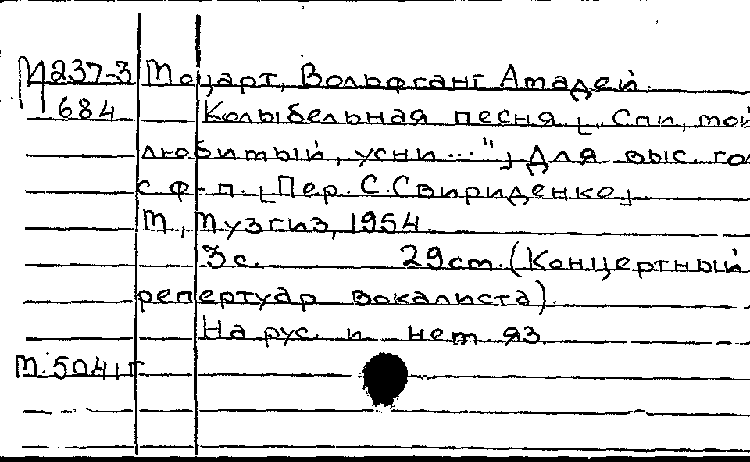 М237-3 Моцарт, Вольфганг Амадей.
684 Колыбельная песня [„Спи, мой
любимый, усни..."] Для выс. гол.
с ф-п. [Пер. С. Свириденко]
М., Музгиз, 1954
3 с. 29 см. (Концертный
репертуар вокалиста)
На рус. и нем яз